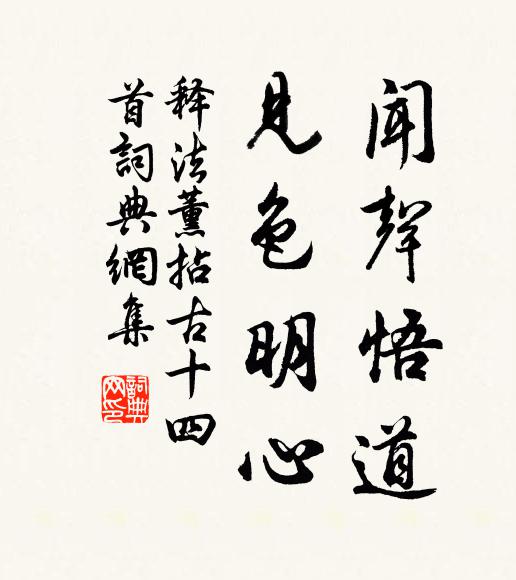 聞聲悟道
見色明心
释法薰拈古十四
首詞典網集
詞典网印